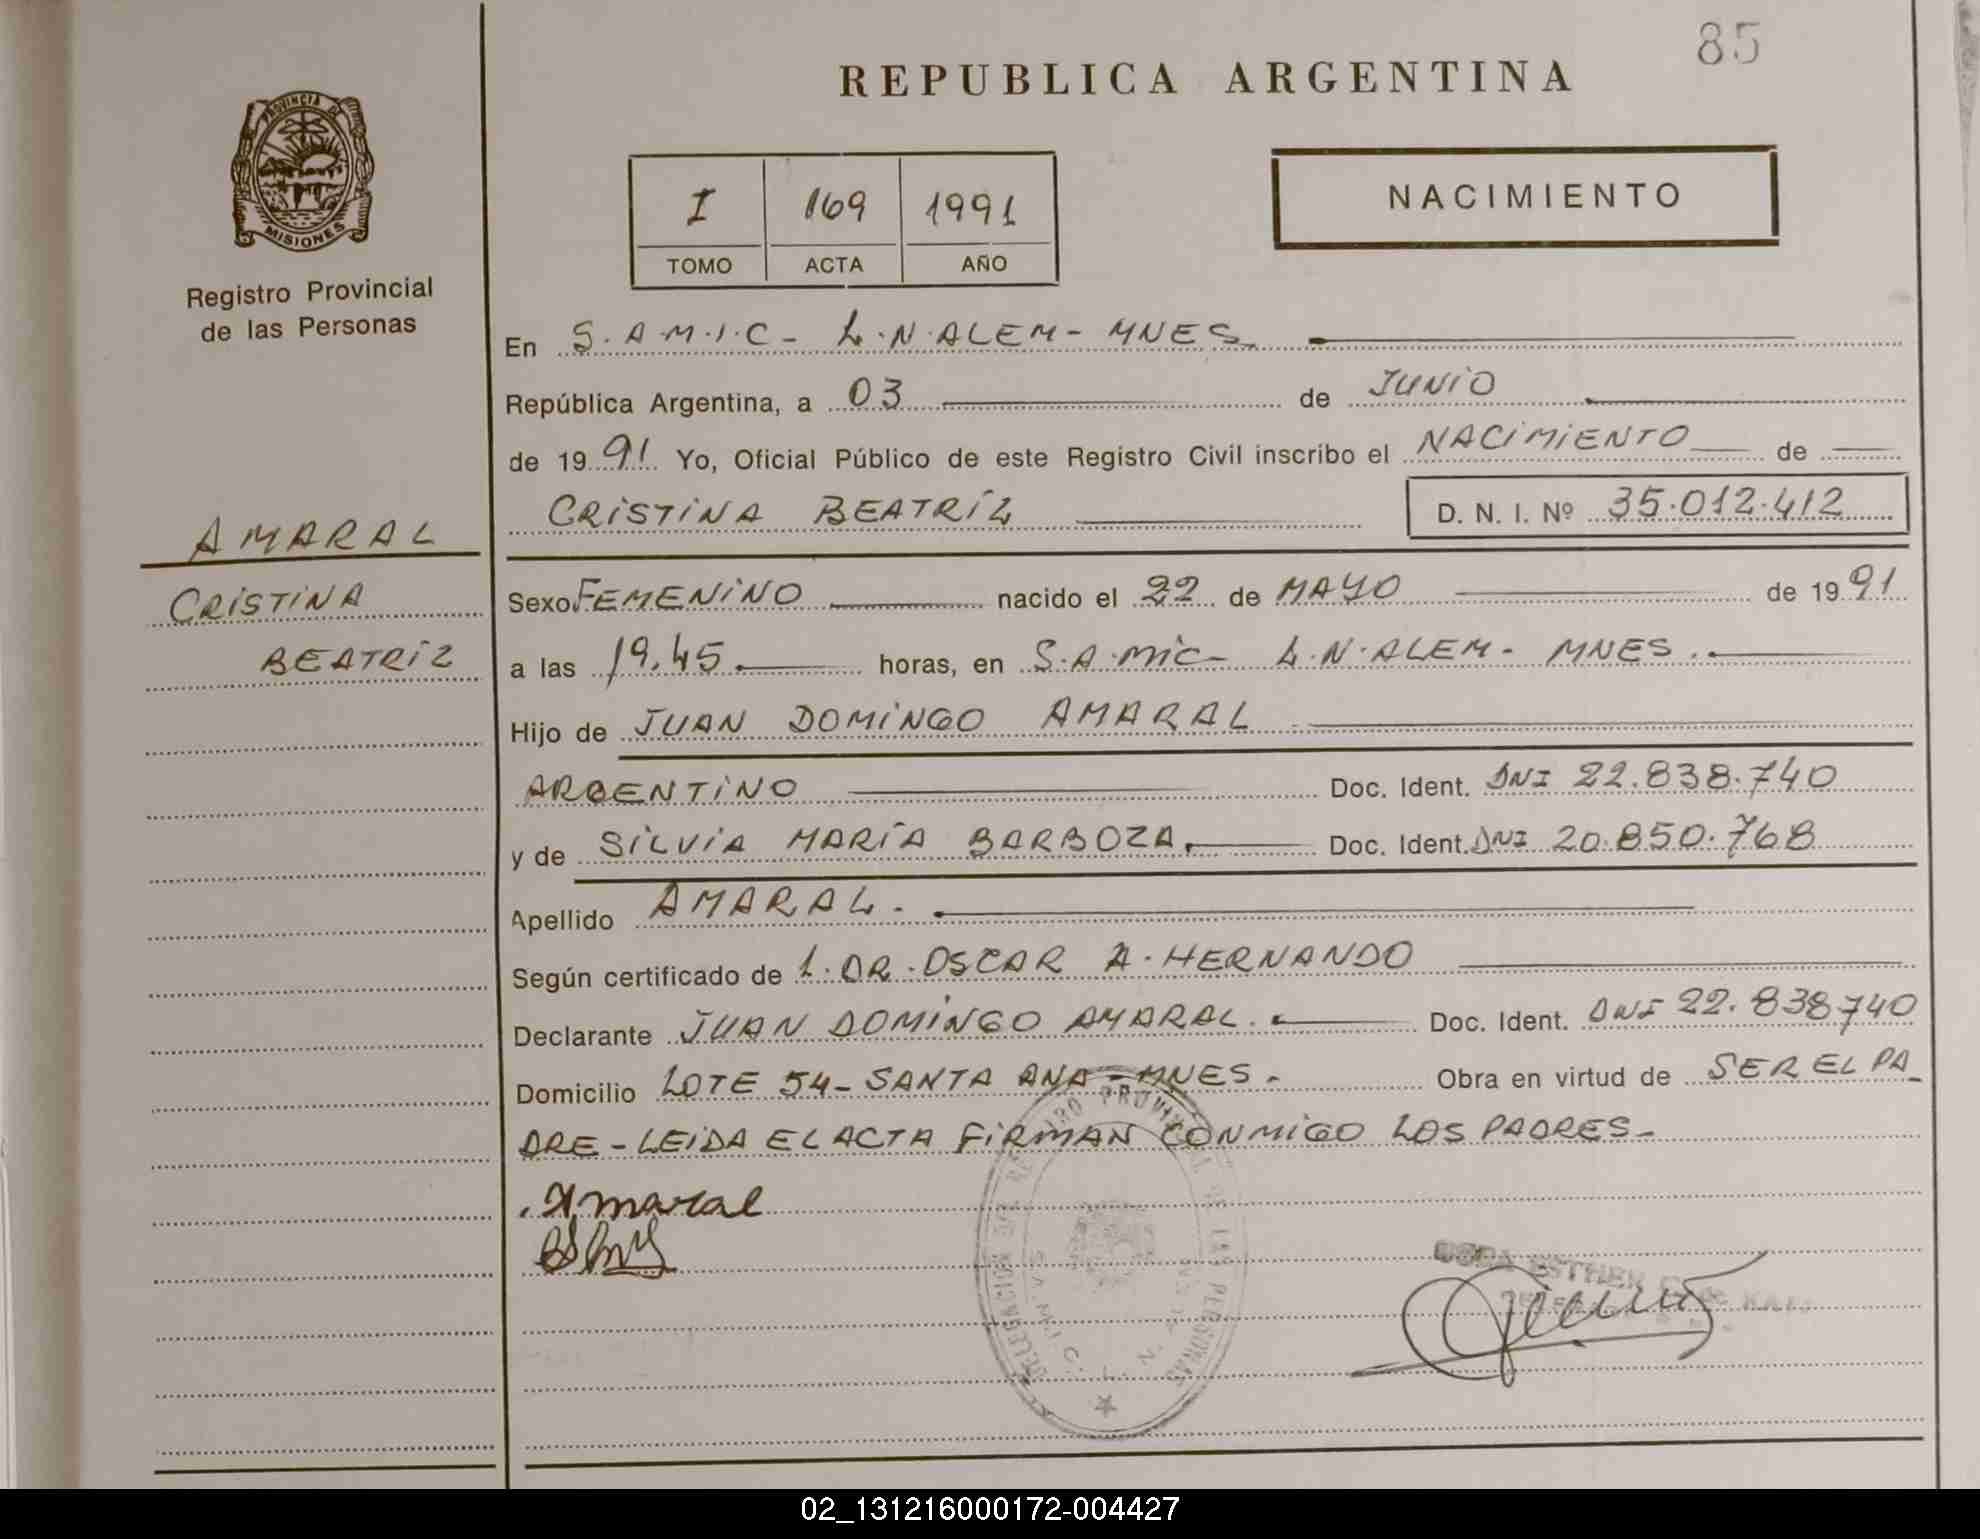 85
REPUBLICA ARGENTINA
PROVINCIA DE
MISIONES
Registro Provincial
de las Personas
I 169 1991
TOMO ACTA AÑO
NACIMIENTO
En S.A.M.I.C- L.N.ALEM- MNES.
República Argentina, a 03 de JUNIO
de 1991 Yo, Oficial Público de este Registro Civil inscribo el NACIMIENTO de
CRISTINA BEATRÍZ D. N. I. Nº 35.012.412
AMARAL
CRISTINA
BEATRIZ
Sexo FEMENINO nacido el 22 de MAYO de 1991
a las 19.45 horas, en S.A.MIC- L.N.ALEM- MNES.
Hijo de JUAN DOMINGO AMARAL
ARGENTINO Doc. Ident. DNI 22.838.740
y de SILVIA MARÍA BARBOZA. Doc. Ident. DNI 20.850.768
Apellido AMARAL.
Según certificado de L. DR. OSCAR A. HERNANDO
Declarante JUAN DOMINGO AMARAL. Doc. Ident. DNI 22.838740
Domicilio LOTE 54- SANTA ANA - MNES. Obra en virtud de SER EL PA_
DRE - LEIDA EL ACTA FIRMAN CONMIGO LOS PADRES-
Amaral
DELEGACION DEL REGISTRO PROVINCIAL DE LAS PERSONAS
S.A.M.I.C. L.N.
ESTHER
02_131216000172-004427